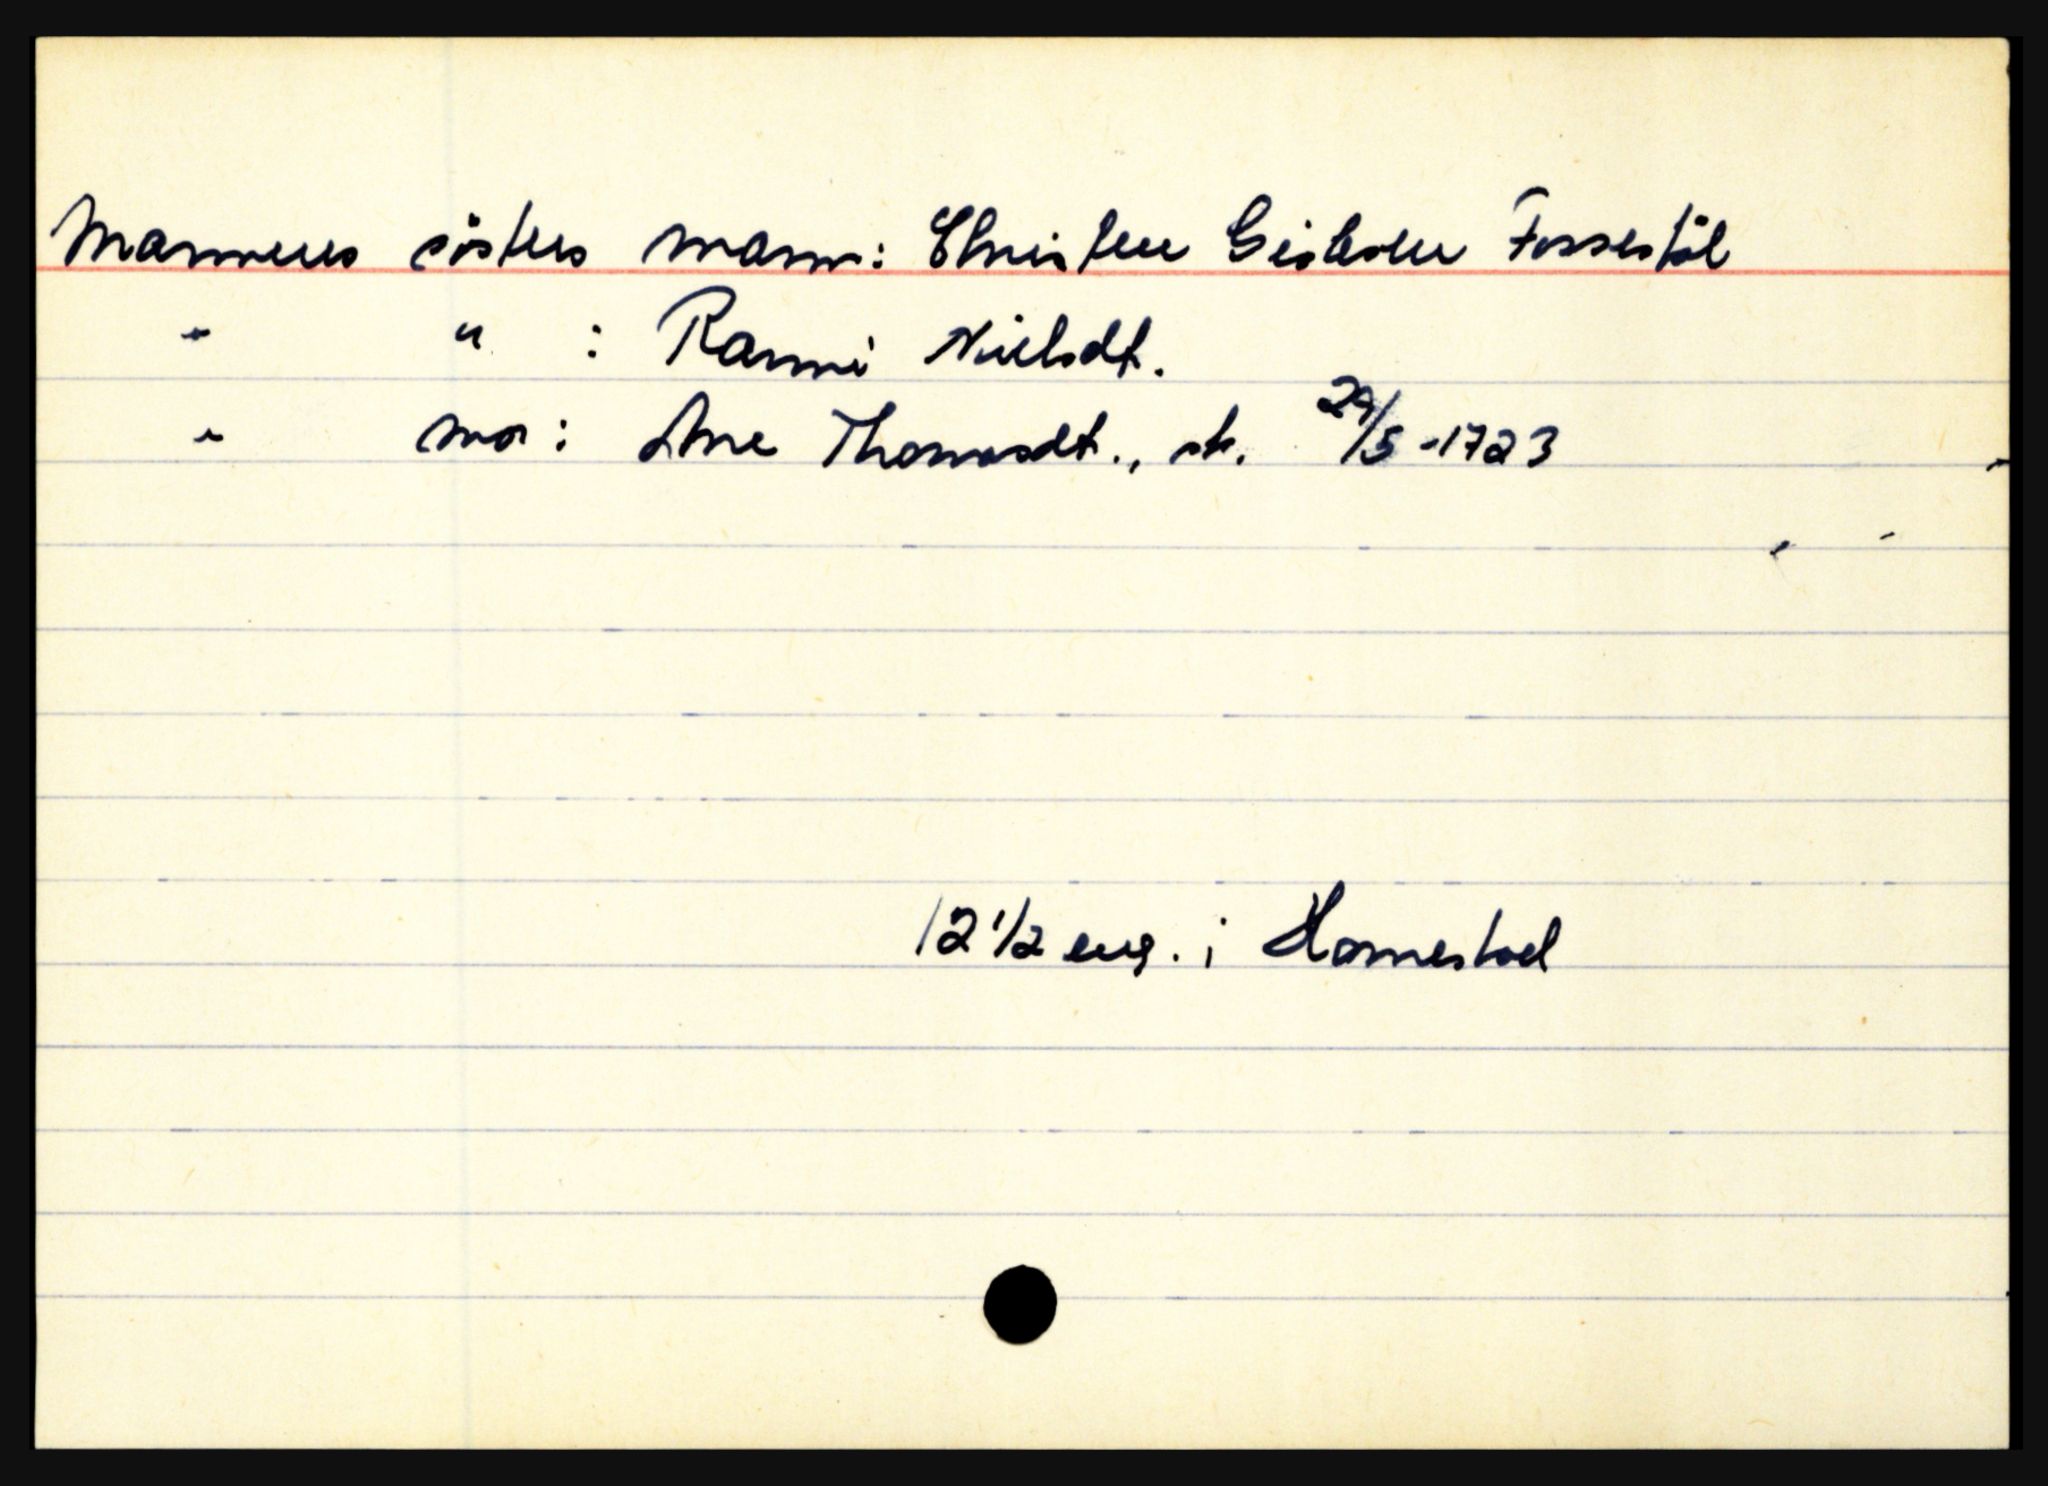 Mannens søsters mann: Christen Gislesen Fossestøl
" " : Ranni Nielsdt.
" mor: Ane Thomasdt., sk. 29/5-1723
12 1/2 eng. i Hornestad